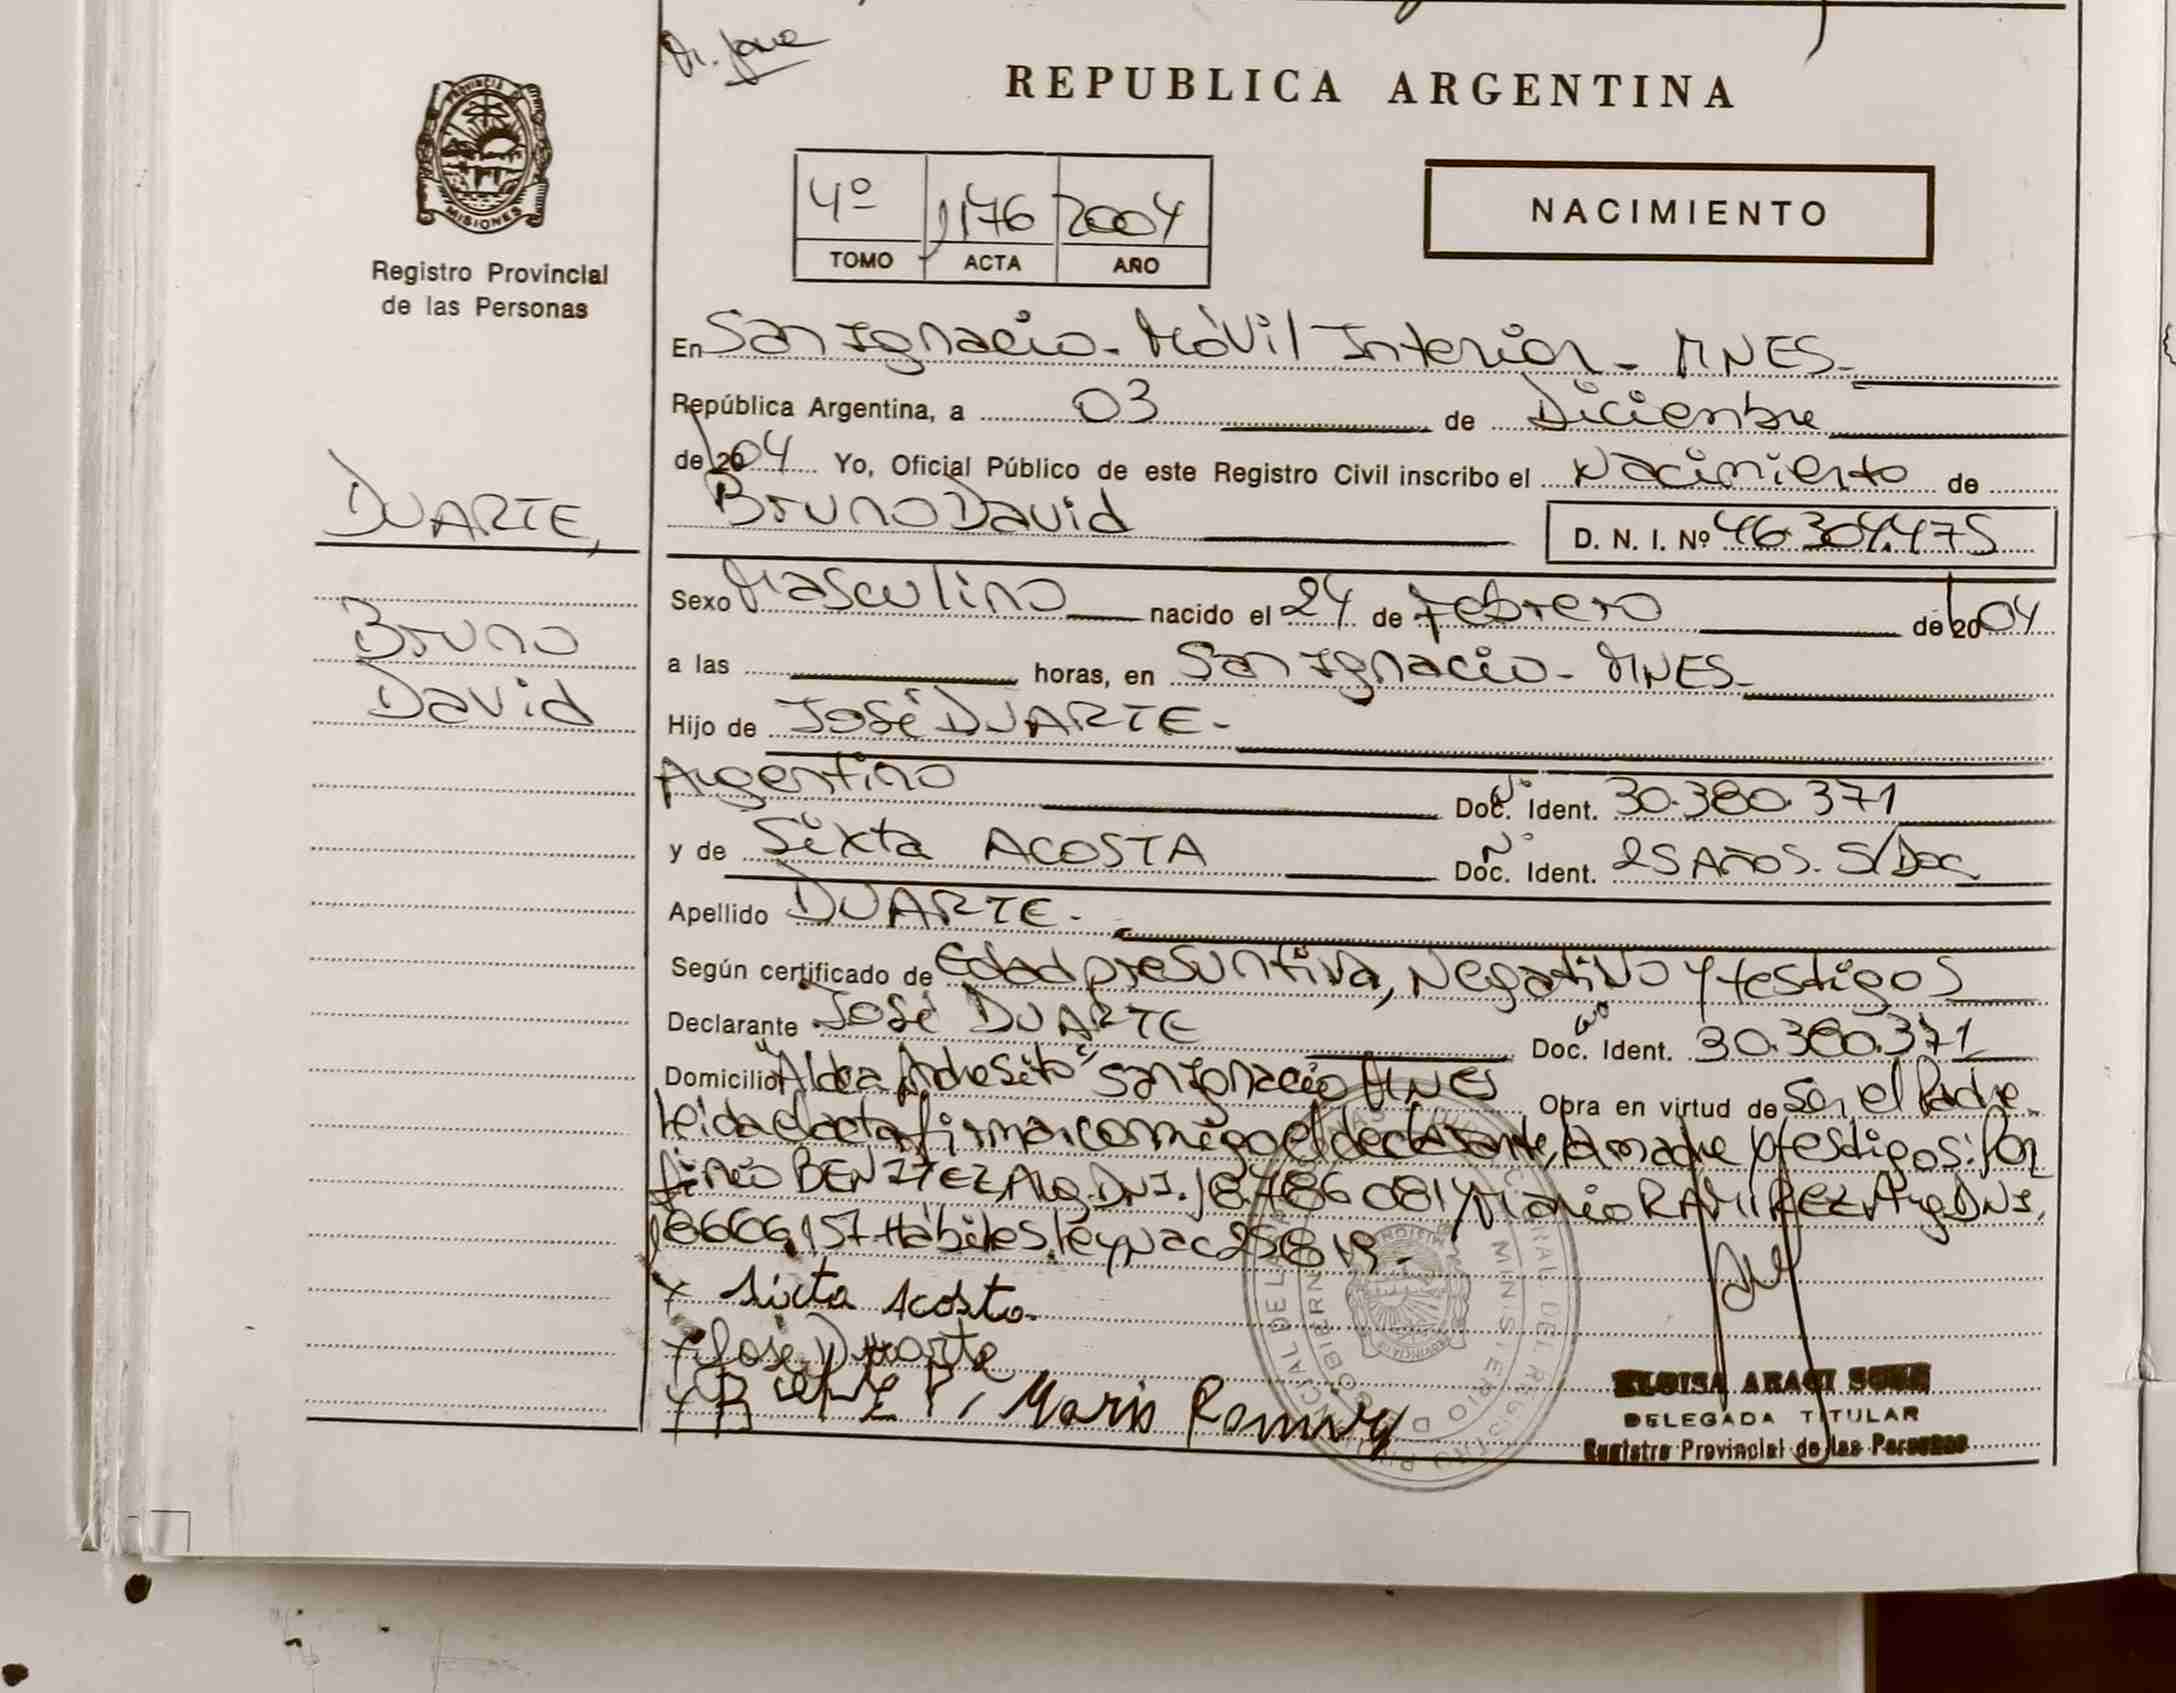 REPUBLICA ARGENTINA
PROVINCIA DE
MISIONES
Registro Provincial
de las Personas
4º 1176 2004
TOMO ACTA AÑO
NACIMIENTO
En San Ignacio - Móvil Interior - MNES -
República Argentina, a 03 de Diciembre
de 2004 Yo, Oficial Público de este Registro Civil inscribo el Nacimiento de
Bruno David D. N. I. Nº 46.304.475
DUARTE,
Bruno
David
Sexo Masculino nacido el 24 de Febrero de 2004
a las horas, en San Ignacio - MNES -
Hijo de José DUARTE -
Argentino Doc. Nº Ident. 30.380.371
y de Sixta ACOSTA Doc. Nº Ident. 25 Años. S/Doc
Apellido DUARTE -
Según certificado de Edad presuntiva, Negativo y testigos
Declarante José DUARTE Doc. Nº Ident. 30.380.371
Domicilio "Aldea Andresito" San Ignacio MNES Obra en virtud de Ser el Padre
Leida el acta firman conmigo el declarante, la madre y testigos: Por
firio BENITEZ, Arg. DNI. 18.786 081 y Mario RAMIREZ Arg DNI.
18606.157 Hábiles. Ley Nac 25819.-
x Sixta Acosta.
x José Duarte
x Mario Ramirez
DELEGADA TITULAR
Registro Provincial de las Personas